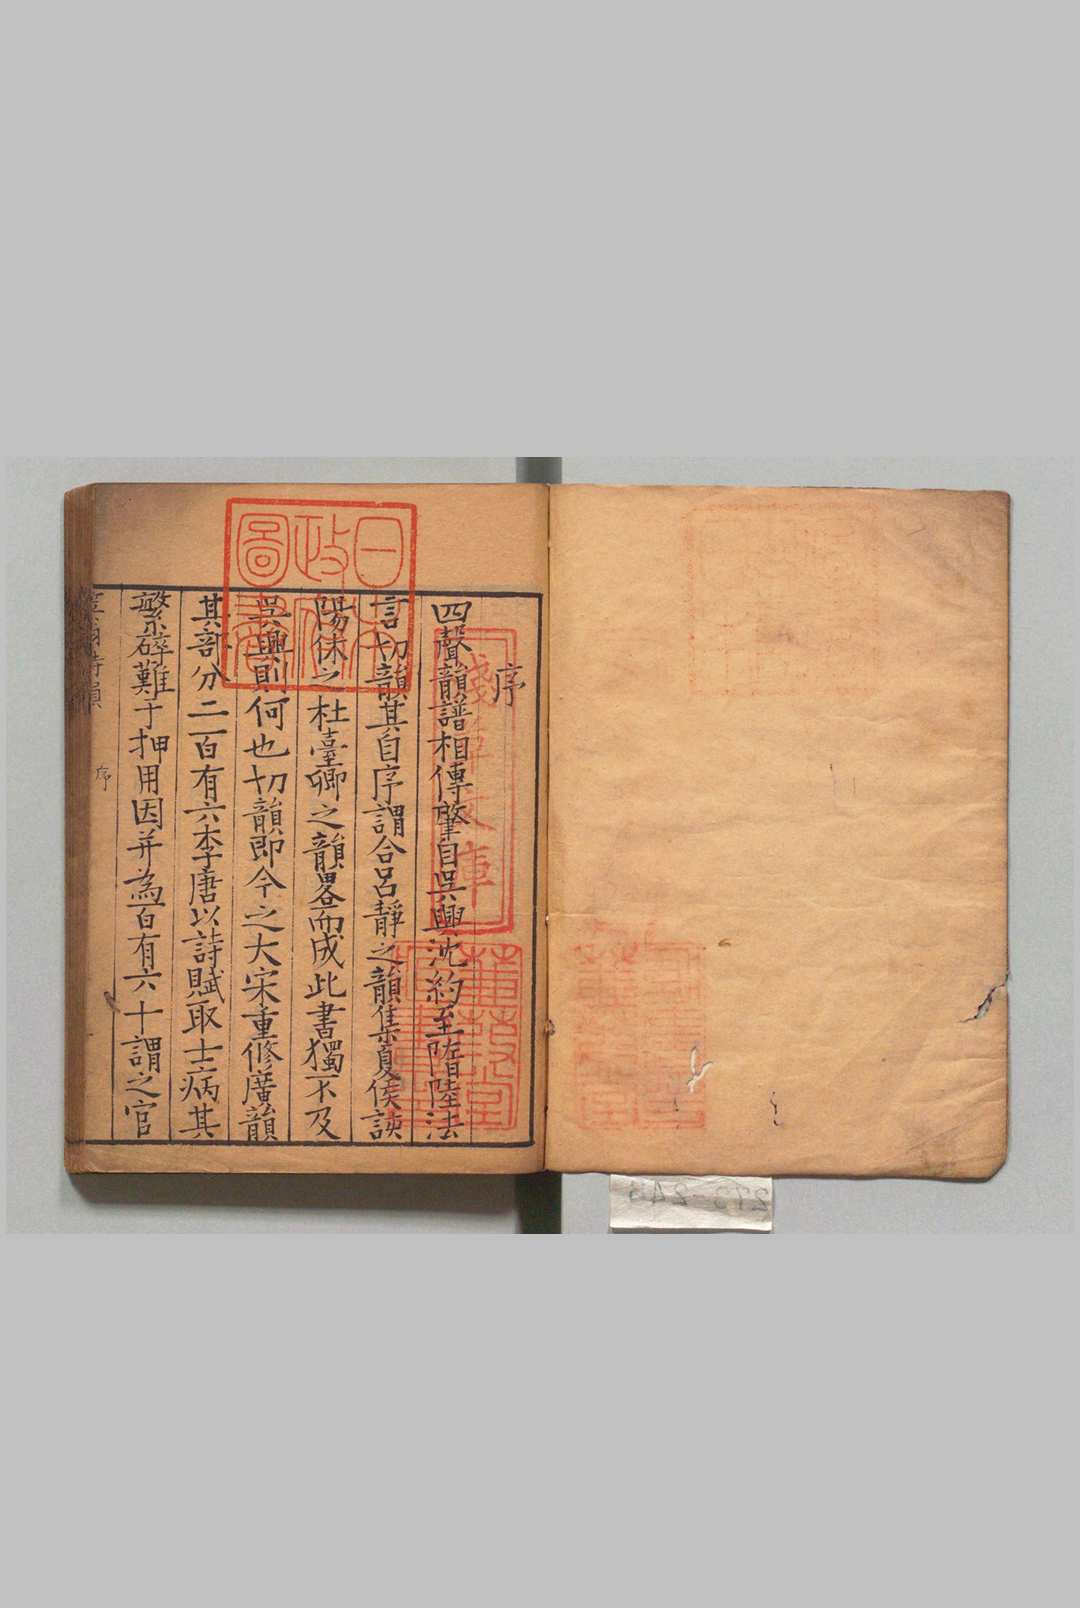 序
四聲韻譜相傳肇自吳興沈約至隋陸法
言切韻其自序謂合呂靜之韻集夏侯詠
陽休之杜臺卿之韻畧而成此書獨不及
吳興則何也切韻即今之大宋重修廣韻
其部分二百有六李唐以詩賦取士病其
繁碎難于押用因并為百有六十謂之官
笠翁詩韻
序
日本
政府
圖書
淺草文庫